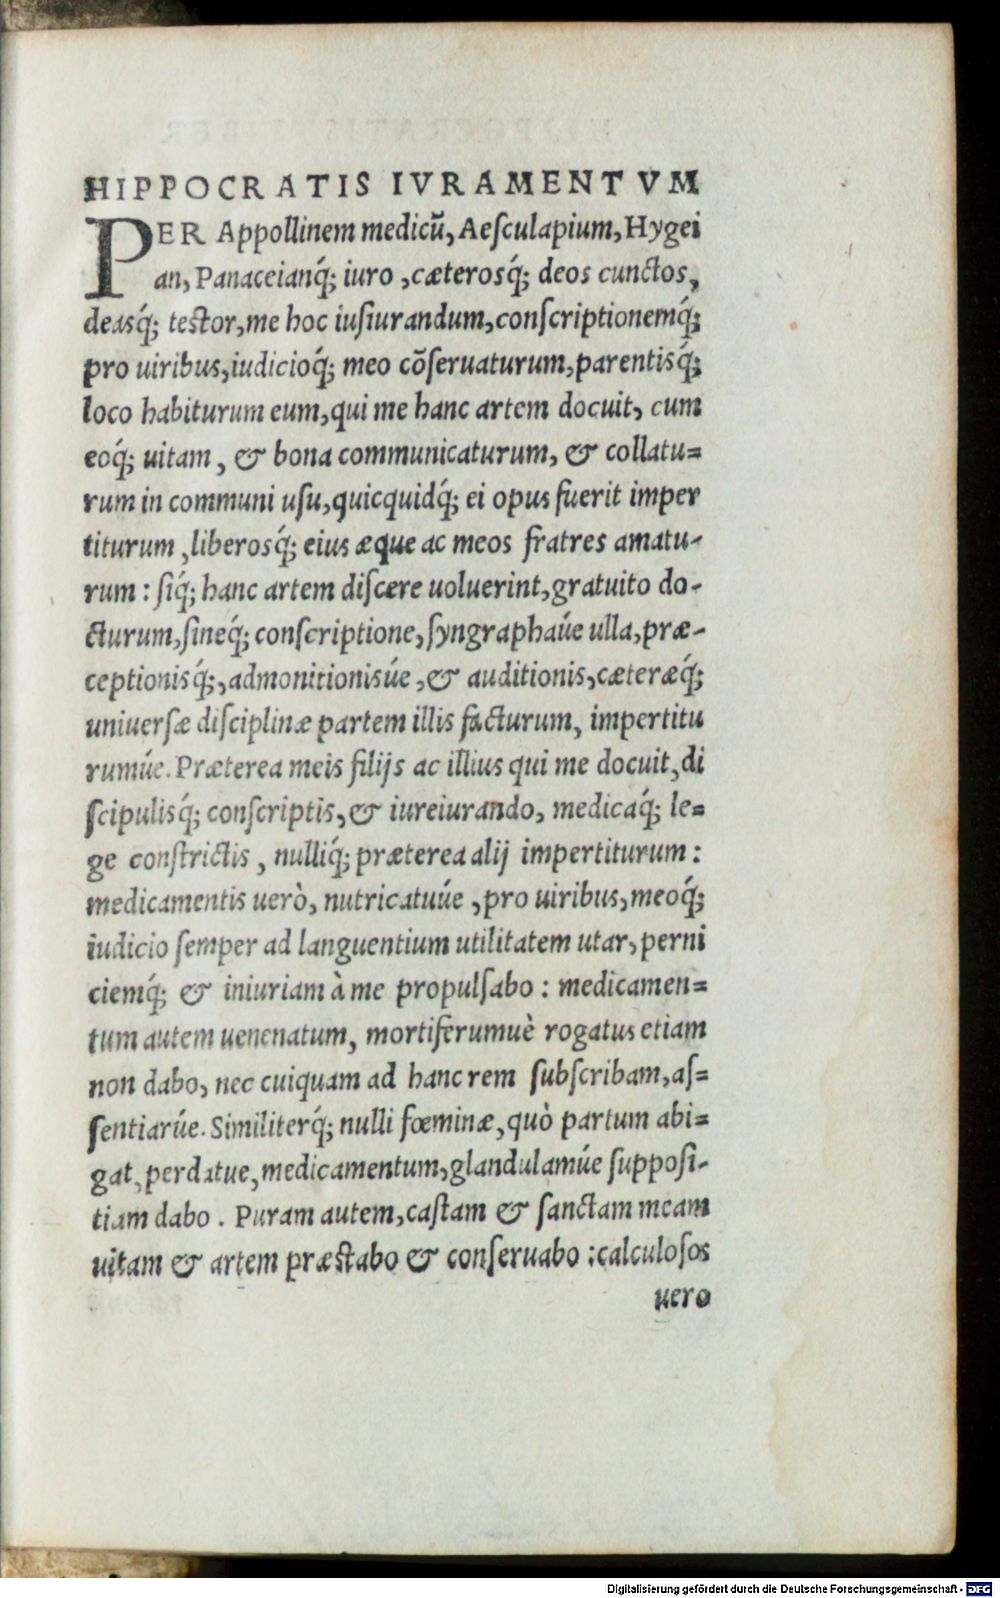 HIPPOCRATIS IVRAMENTVM
PER Appollinem medicū, Aesculapium, Hygei
an, Panaceianq́; iuro, cæterosq́; deos cunctos,
deasq́; testor, me hoc iusiurandum, conscriptionemq́;
pro uiribus, iudicioq́; meo cōseruaturum, parentisq́;
loco habiturum eum, qui me hanc artem docuit, cum
eoq́; uitam, & bona communicaturum, & collatu=
rum in communi usu, quicquidq́; ei opus fuerit imper
titurum, liberosq́; eius æque ac meos fratres amatu-
rum: siq́; hanc artem discere uoluerint, gratuito do-
cturum, sineq́; conscriptione, syngraphaúe ulla, præ-
ceptionisq́;, admonitionisúe, & auditionis, cæteræq́;
uniuersæ disciplinæ partem illis facturum, impertitu
rumúe. Præterea meis filijs ac illius qui me docuit, di
scipulisq́; conscriptis, & iureiurando, medicaq́; le=
ge constrictis, nulliq́; præterea alij impertiturum:
medicamentis uerò, nutricatuúe, pro uiribus, meoq́;
iudicio semper ad languentium utilitatem utar, perni
ciemq́; & iniuriam à me propulsabo: medicamen=
tum autem uenenatum, mortiferumuè rogatus etiam
non dabo, nec cuiquam ad hanc rem subscribam, as=
sentiarúe. Similiterq́; nulli fœminæ, quò partum abi=
gat, perdatue, medicamentum, glandulamúe supposi-
tiam dabo. Puram autem, castam & sanctam meam
uitam & artem præstabo & conseruabo: calculosos
uero
Digitalisierung gefördert durch die Deutsche Forschungsgemeinschaft - DFG